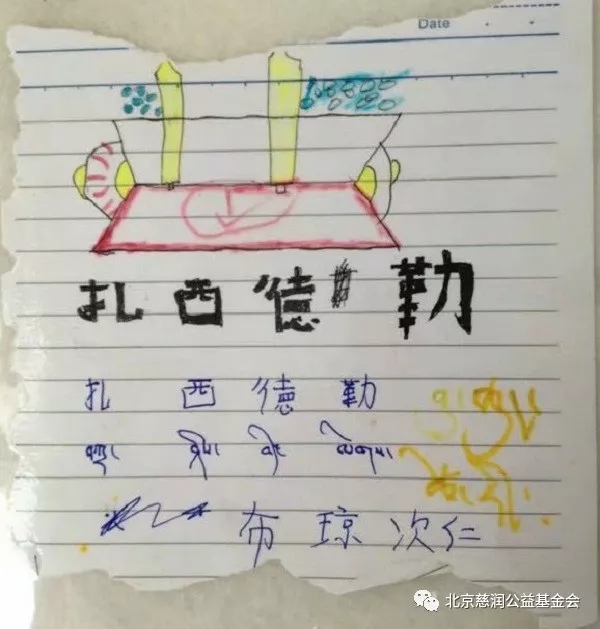 Date
扎西德勒
扎 西 德 勒
བཀྲ་ ཤིས་ བདེ་ ལེགས་
布琼次仁
北京慈润公益基金会